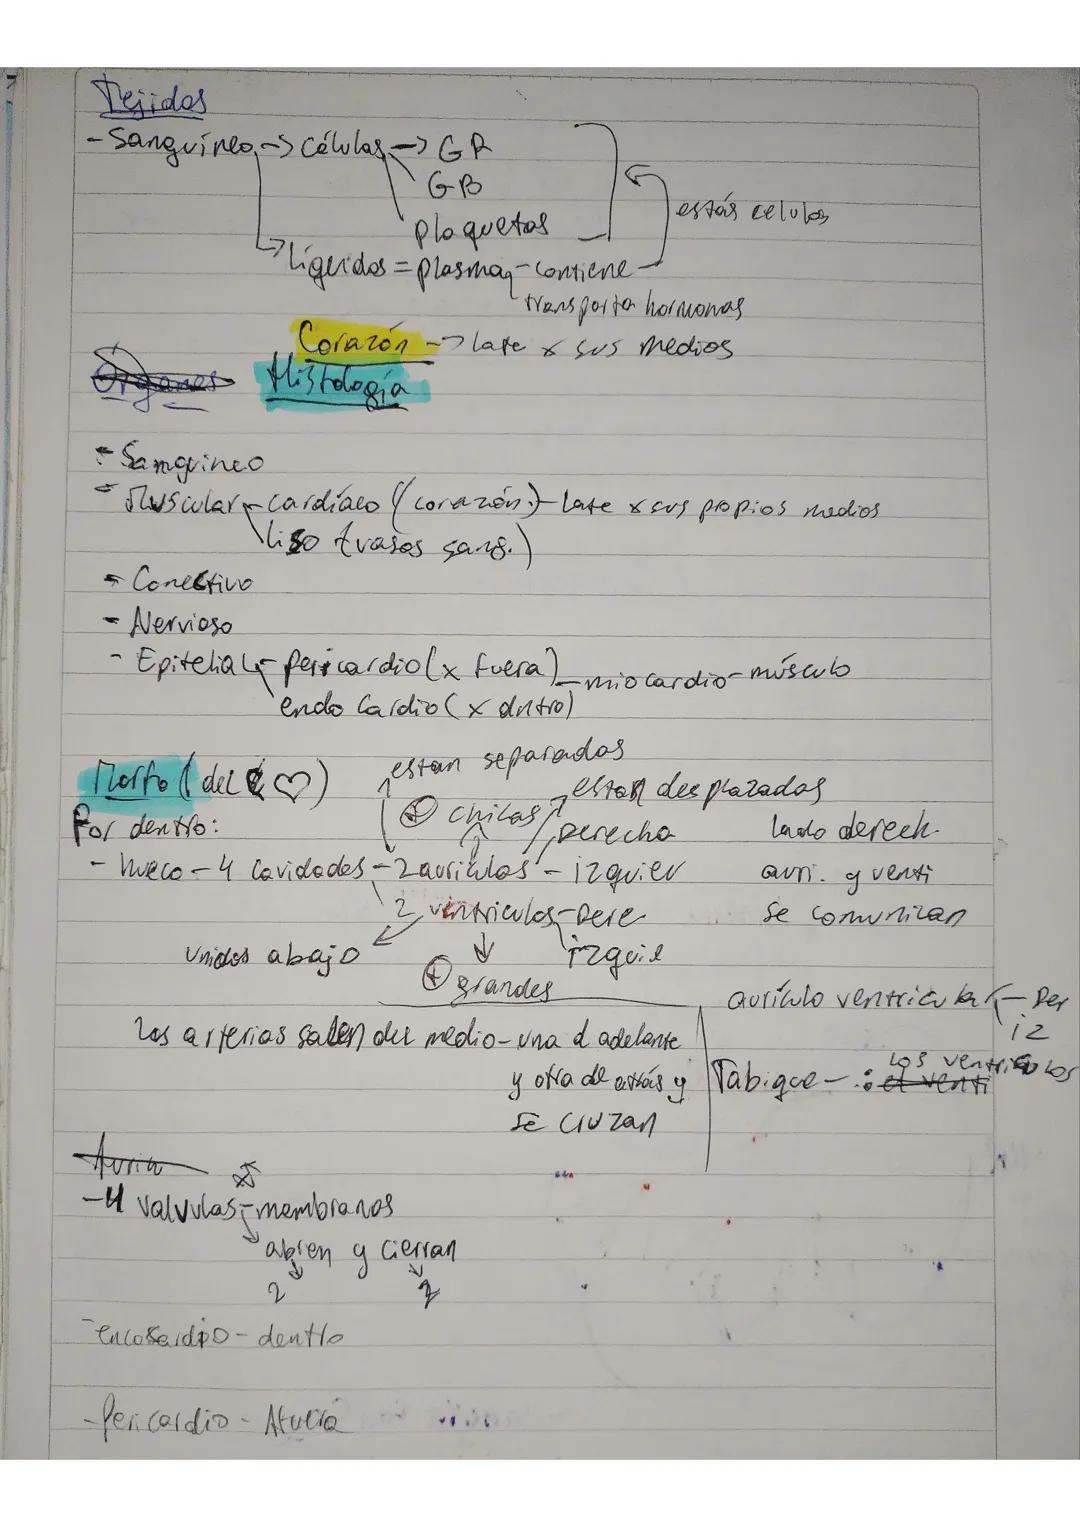 Tejidos
- Sanguíneo -> Células -> GR
GB
plaquetas
estás celulas
-> líqeidos = plasma - contiene
transporta hormonas
Corazón -> late x sus medios
Organos Histología
- Sanguineo
- Muscular - cardíaco (corazón) - late x sus propios medios
liso (vasos sang.)
- Conectivo
- Nervioso
- Epitelial - pericardio (x fuera) - miocardio - músculo
endo Cardio (x dntro)
Morfo (del ♡)
estan separados
⊕ chicas estan desplazadas
Por dentro: Derecha lado derech.
- hueco - 4 Cavidades - 2 auriculas - izquier auri. y venti
2 ventriculos - Dere se comunican
Unidos abajo izquie
⊕ grandes
auriculo ventricular - Der
iz
las arterias salen del medio - una d adelante
y otra de atrás y Tabique - : los ventriculos
el venti
se cruzan
Auricu
- 4 valvulas - membranas
abren y cierran
2 2
- encocardio - dentro
- Pericardio - Afuera